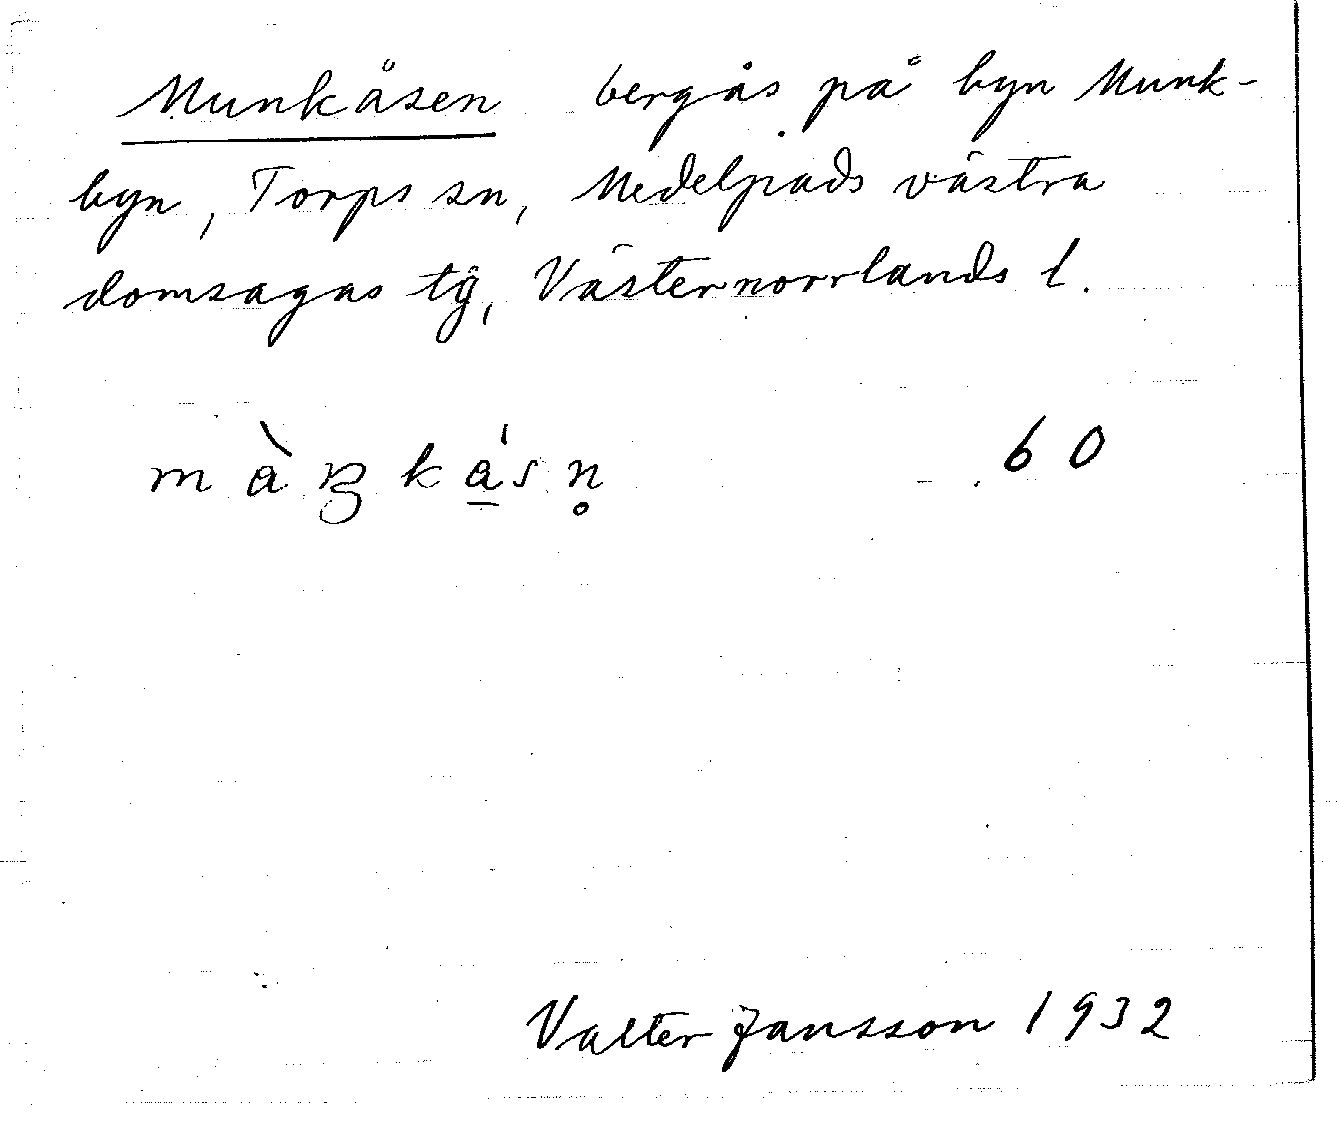 Munkåsen bergås på byn Munk-
byn, Torps sn, Medelpads västra
domsagas tg, Västernorrlands l.
màŋkásn̥ 60
Valter Jansson 1932